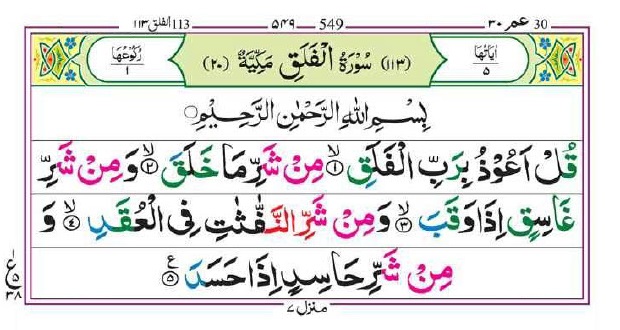 عم ٣٠ 30 549 ٥٤٩ 113 الفلق ١١٣
اٰیَاتُهَا ٥ (١١٣) سُوْرَةُ الْفَلَقِ مَكِّيَّةٌ (٢٠) رُكُوْعُهَا ١
بِسْمِ اللّٰهِ الرَّحْمٰنِ الرَّحِيْمِ
قُلْ اَعُوْذُ بِرَبِّ الْفَلَقِ ۙ﴿١﴾ مِنْ شَرِّ مَا خَلَقَ ۙ﴿٢﴾ وَ مِنْ شَرِّ
غَاسِقٍ اِذَا وَقَبَ ۙ﴿٣﴾ وَ مِنْ شَرِّ النَّفّٰثٰتِ فِی الْعُقَدِ ۙ﴿٤﴾ وَ
مِنْ شَرِّ حَاسِدٍ اِذَا حَسَدَ ﴿٥﴾ ع
ع ١ ٥ ٣٨
منزل ٧